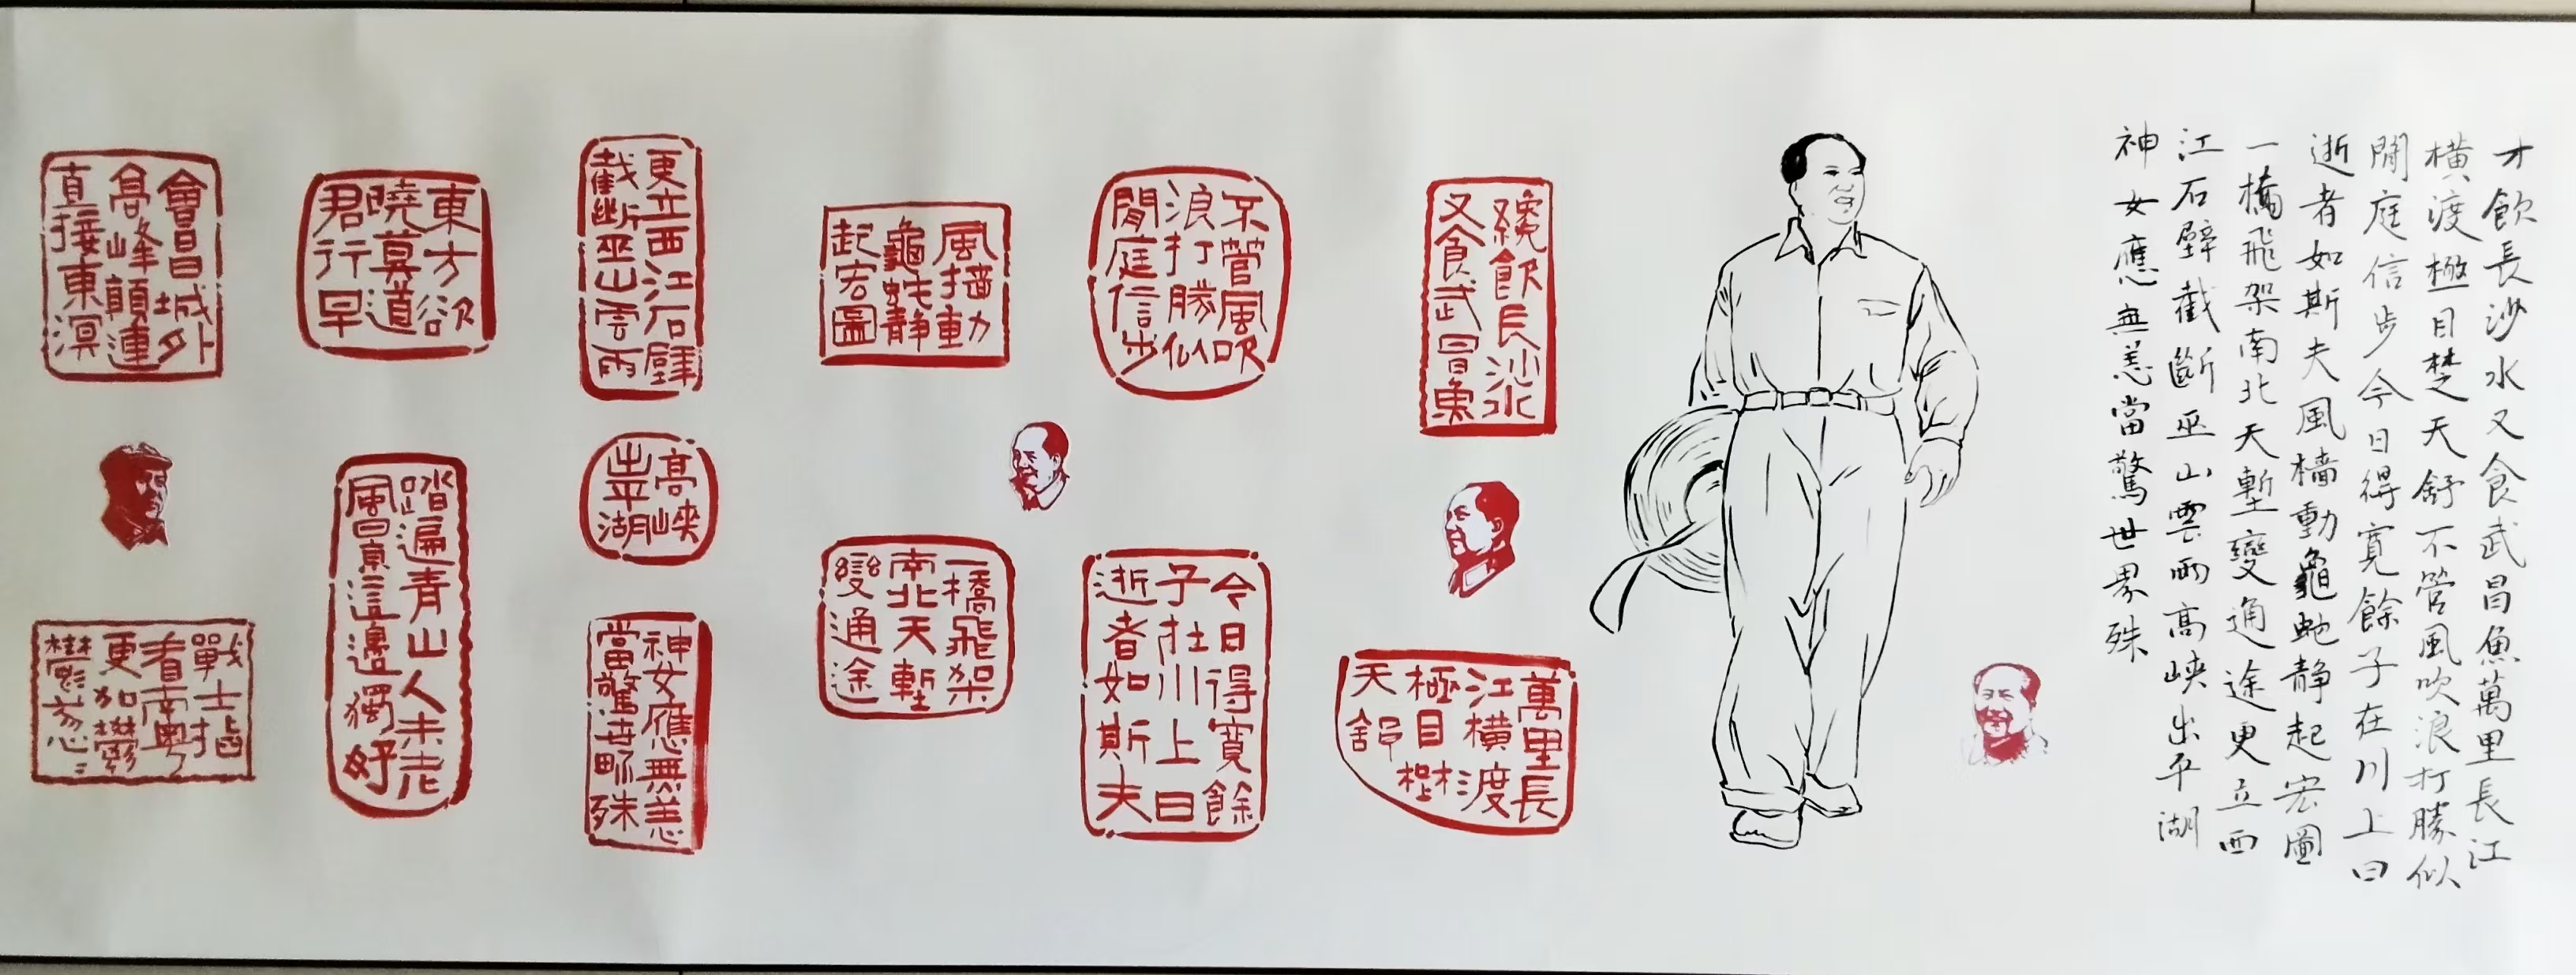 才飲長沙水又食武昌魚萬里長江
橫渡極目楚天舒不管風吹浪打勝似
閒庭信步今日得寬餘子在川上曰
逝者如斯夫風檣動龜虵静起宏圖
一橋飛架南北天塹變通途更立西
江石壁截斷巫山雲雨高峽出平湖
神女應無恙當驚世界殊
纔飲長沙水
又食武昌魚
萬里長
江橫渡
極目楚
天舒
不管風吹
浪打勝似
閒庭信步
今日得寬餘
子在川上曰
逝者如斯夫
風檣動
龜蛇静
起宏圖
一橋飛架
南北天塹
變通途
更立西江石壁
截斷巫山雲雨
高峽
出平湖
神女應無恙
當驚世界殊
東方欲
曉莫道
君行早
踏遍青山人未老
風景這邊獨好
會昌城外
高峰顛連
直接東溟
戰士指
看南粵
更加鬱
鬱葱〻